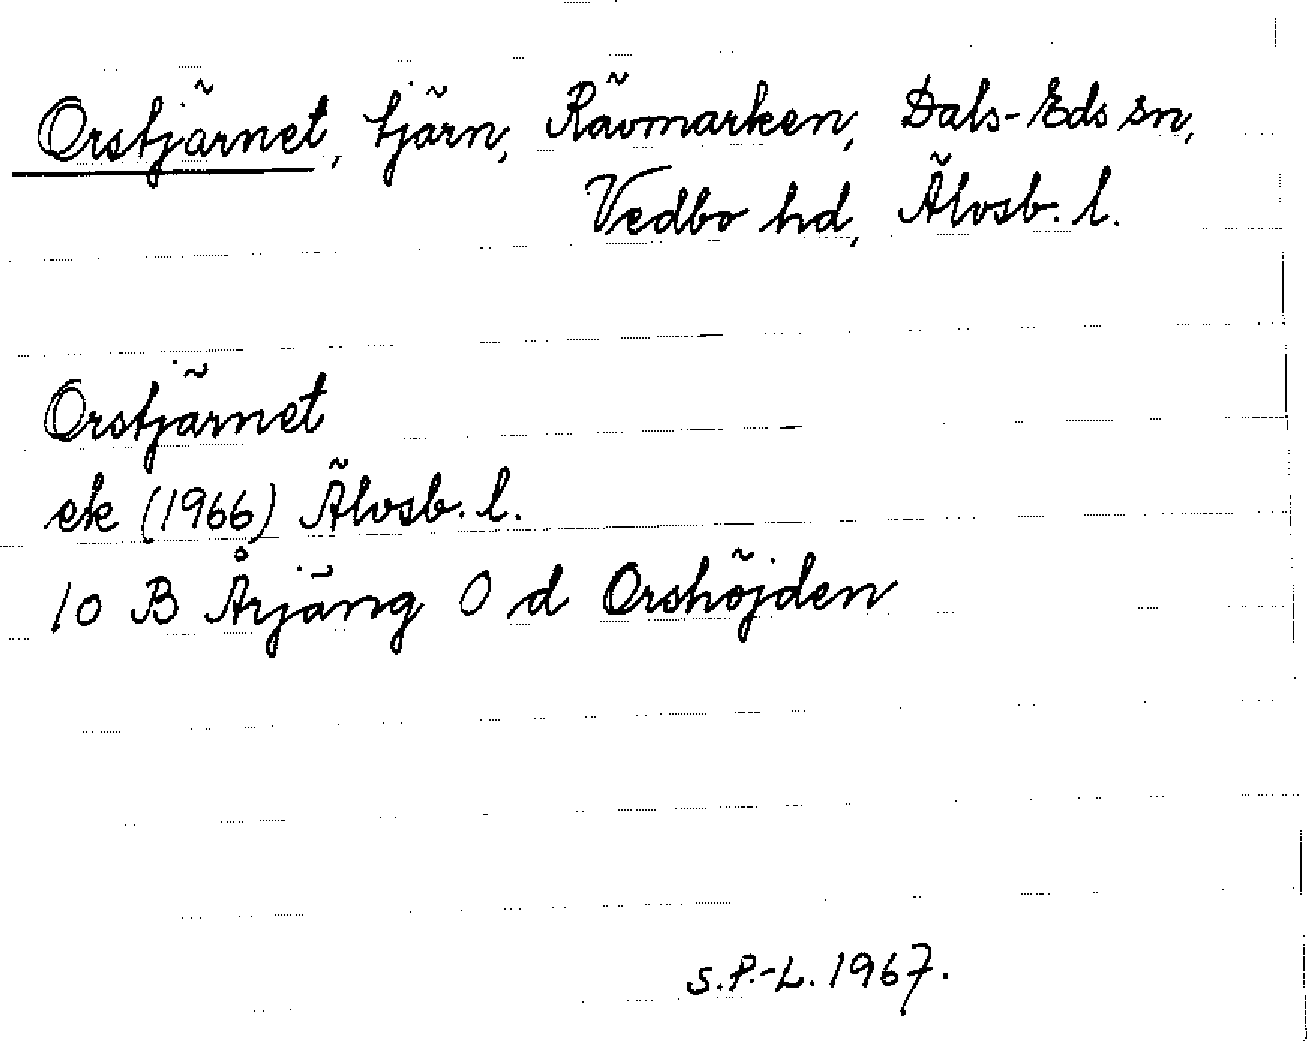 Orstjärnet, tjärn, Rävmarken, Dals-Eds sn,
Vedbo hd, Älvsb. l.
Orstjärnet
ek (1966) Älvsb. l.
10 B Årjäng O d Orshöjden
S.P.-L. 1967.